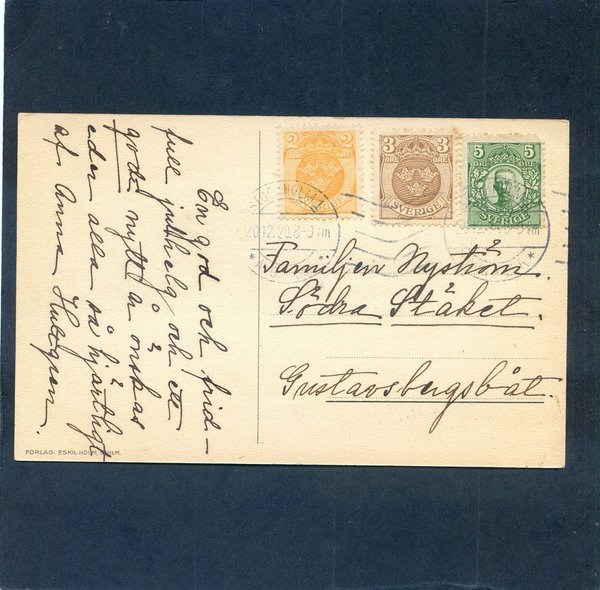 En god och frid-
full julhelg och ett
godt nytt år önskas
eder alla så hjärtligt
af Anna Hultgren.
FÖRLAG: ESKIL HOLM, STHLM.
2 2
ÖRE ÖRE
3 3
ÖRE ÖRE
SVERIGE
5 5
ÖRE ÖRE
SVERIGE
STOCKHOLM
20.12.20.8-9 fm
Familjen Nyström.
Södra Stäket.
Gustavsbergsbåt.